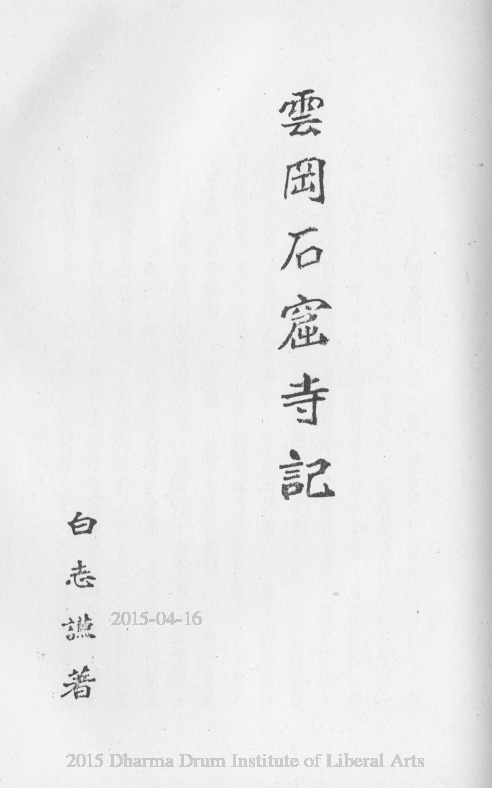 雲岡石窟寺記
白志謙著
2015-04-16
2015 Dharma Drum Institute of Liberal Arts